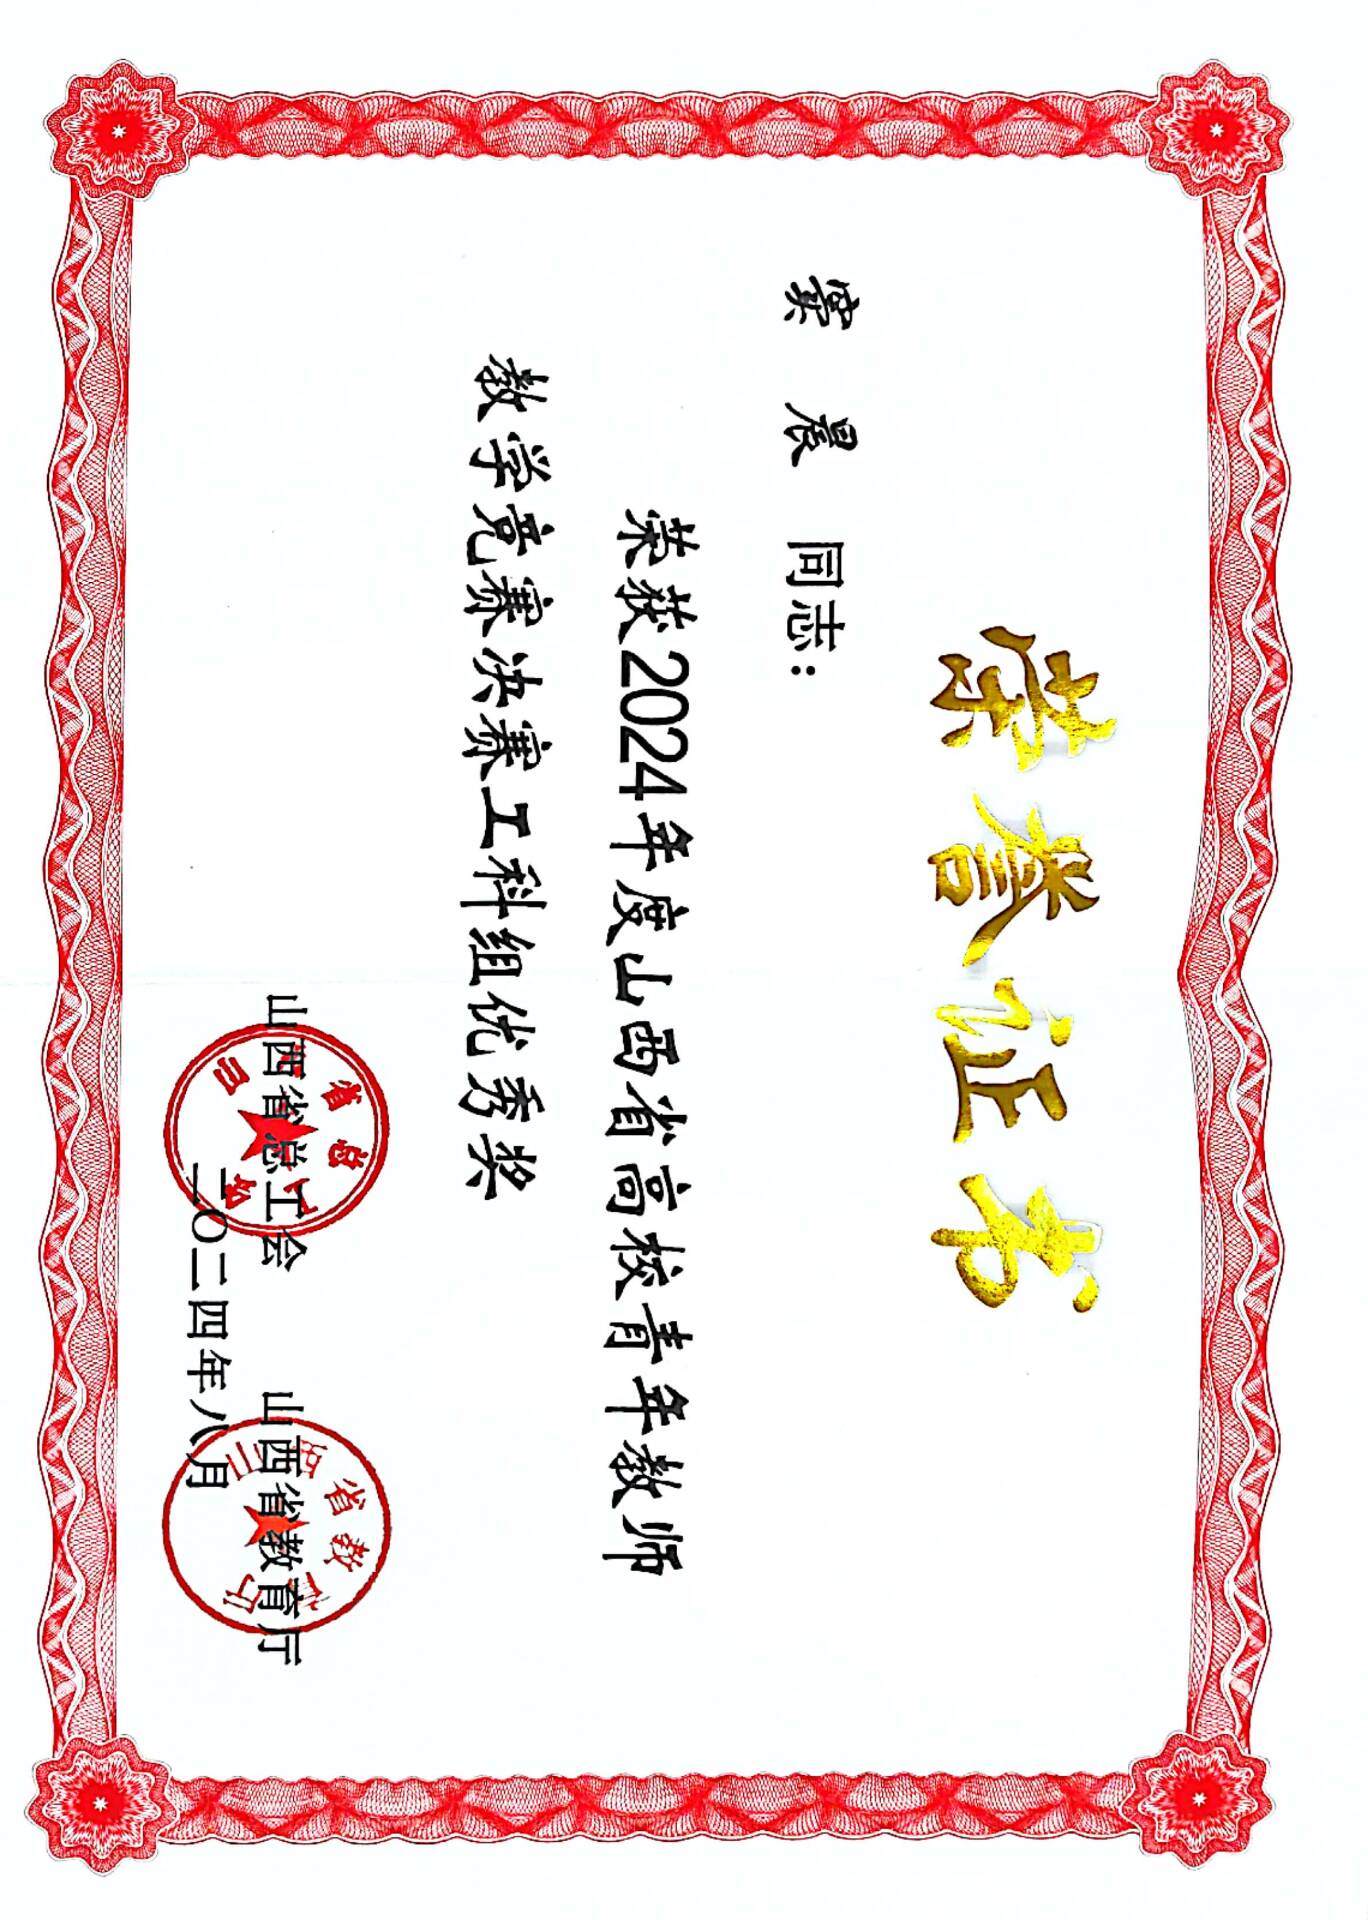 荣誉证书
晨 同志:
荣获2024年度山西省高校青年教师
教学竞赛决赛工科组优秀奖
山西省总工会 山西省教育厅
二〇二四年八月